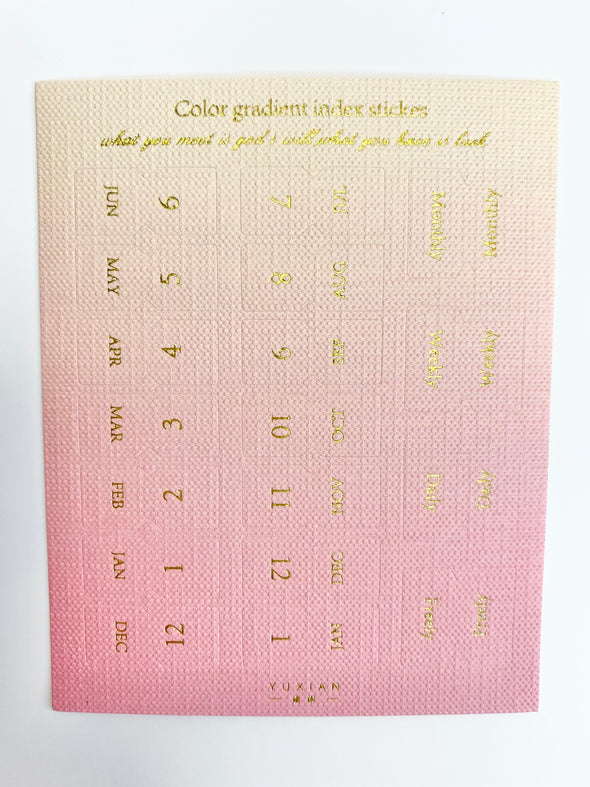 Color gradient index stickes
what you meet is god's will,what you have is luck
JUN 6
MAY 5
APR 4
MAR 3
FEB 2
JAN 1
DEC 12
7 JUL
8 AUG
9 SEP
10 OCT
11 NOV
12 DEC
1 JAN
Monthly Monthly
Weekly Weekly
Daily Daily
Freely Freely
YUXIAN